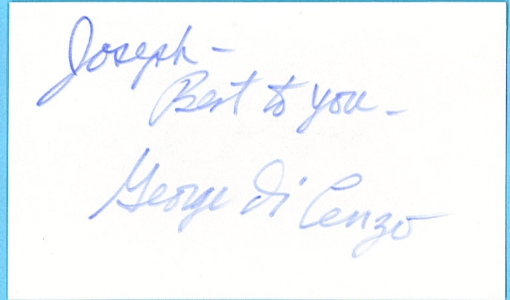 Joseph -
Best to you -
George Di Cenzo